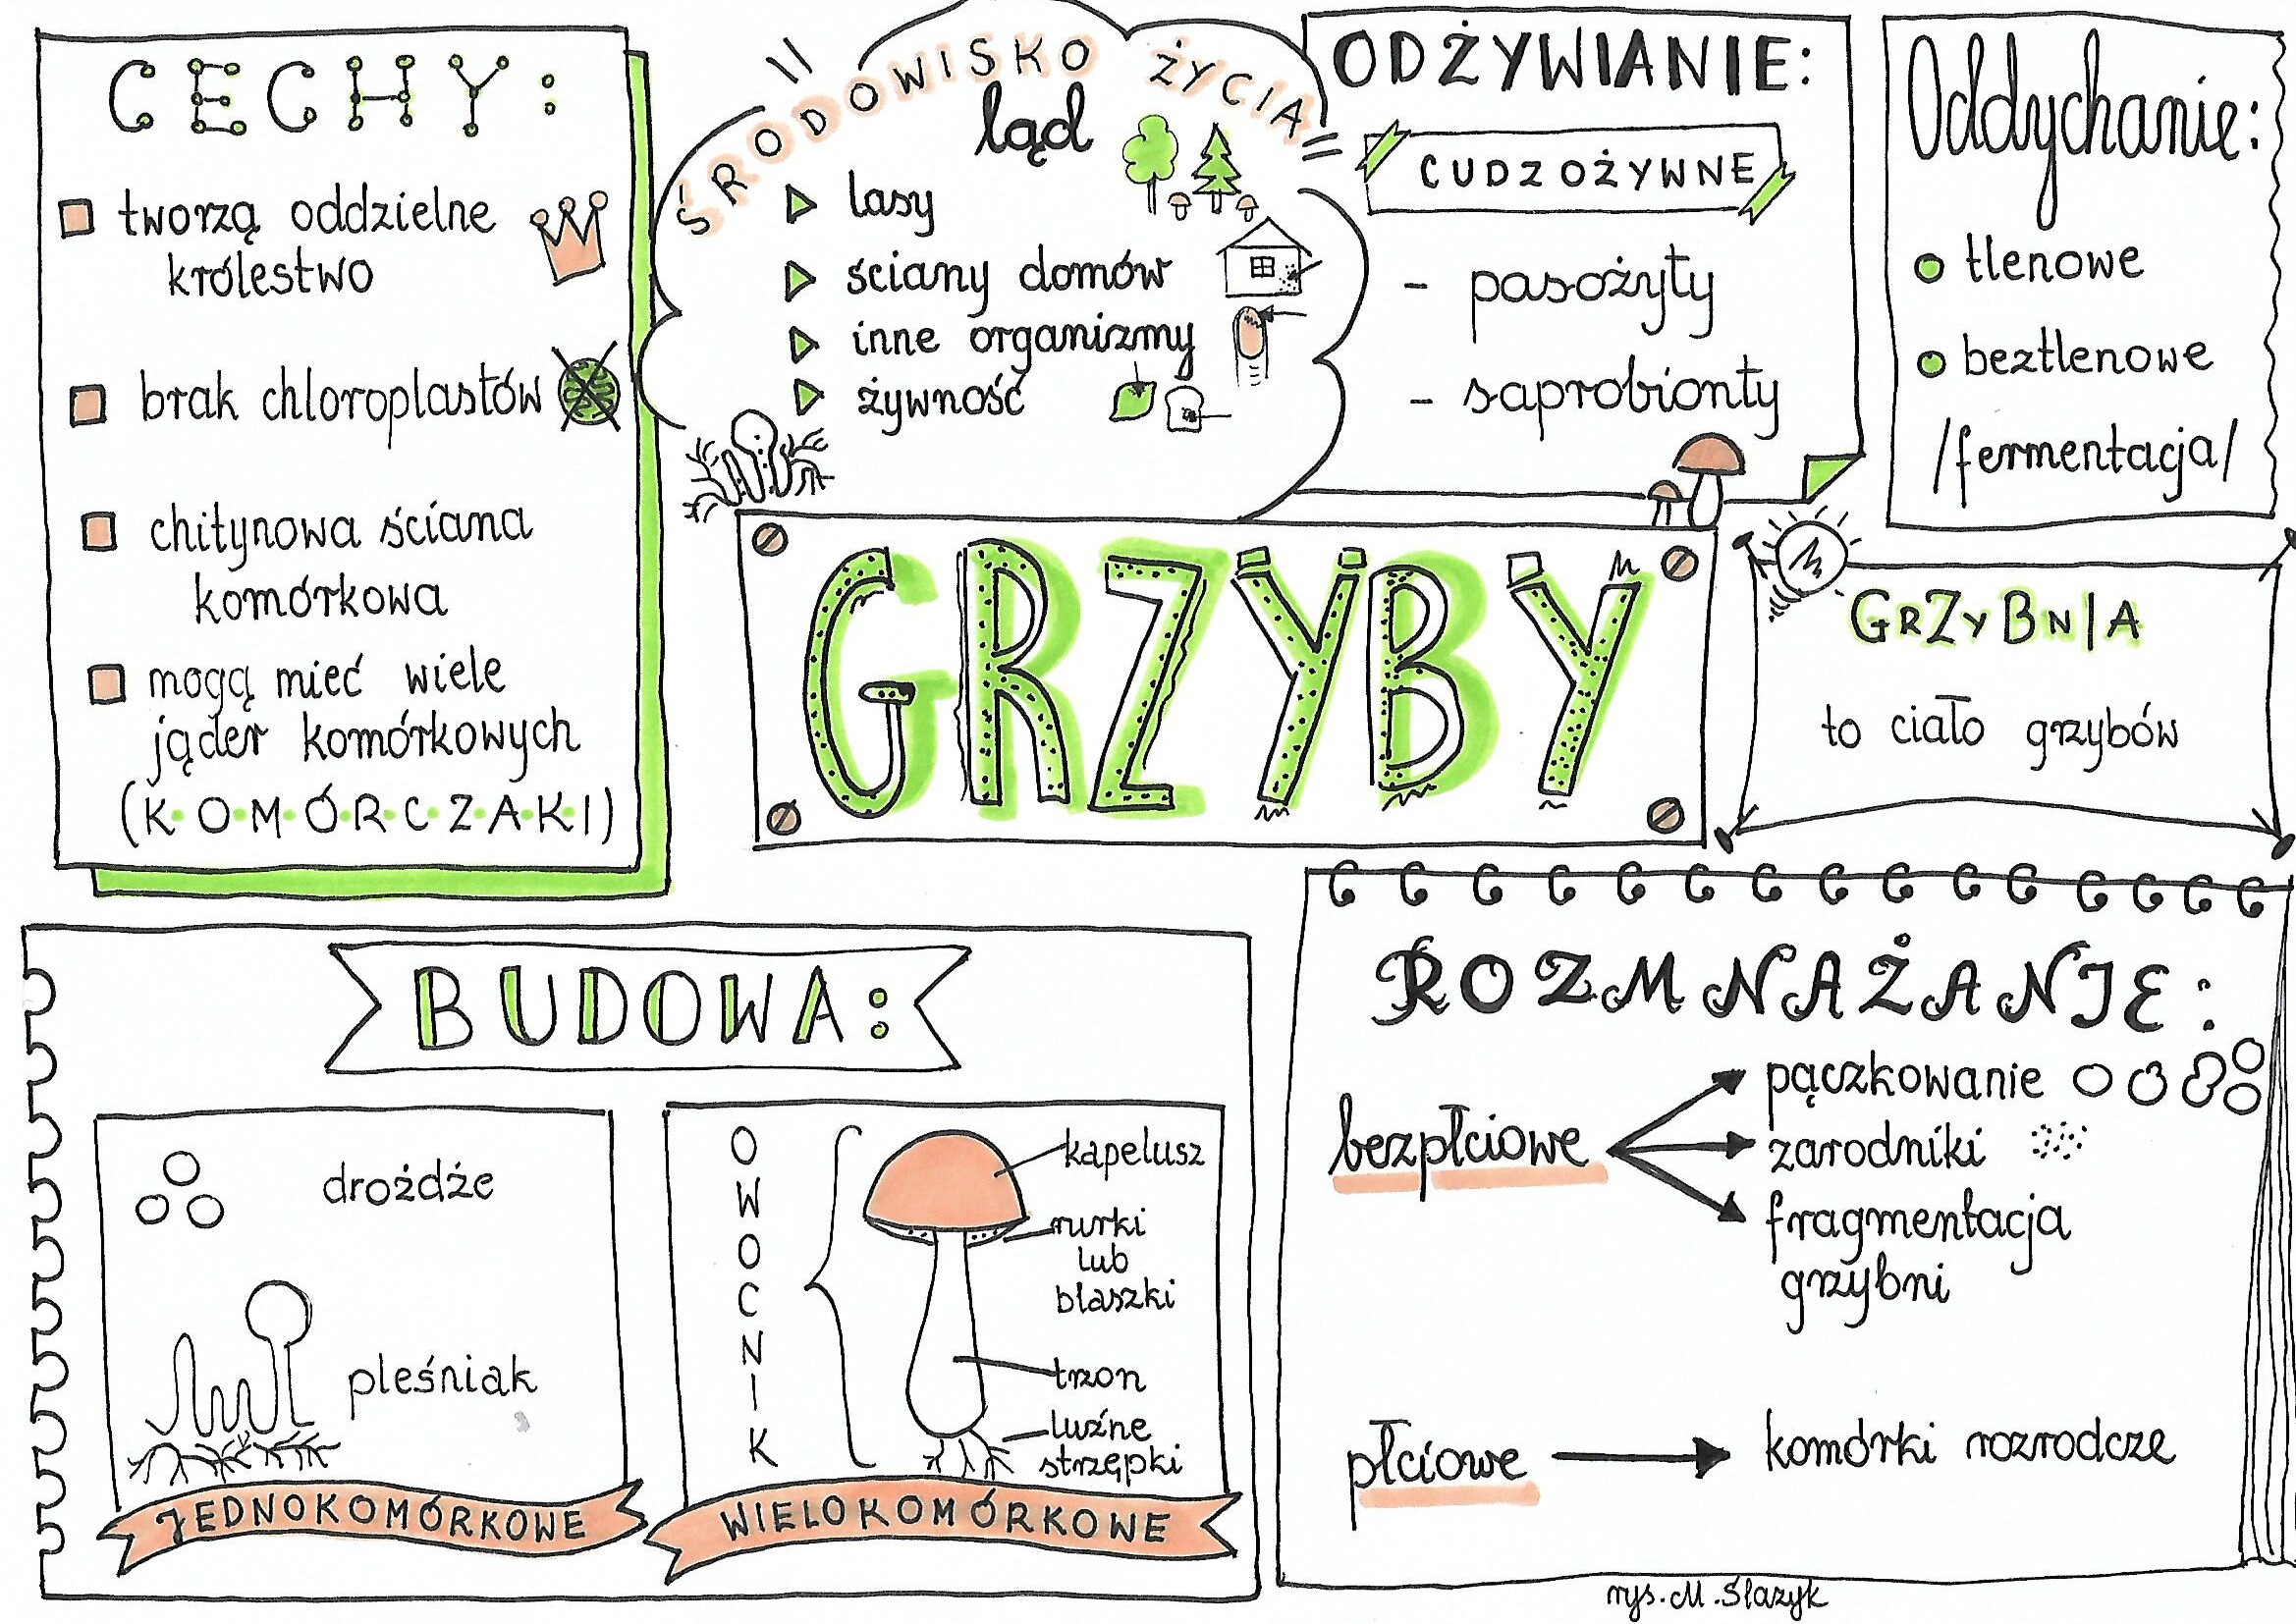 CECHY:
tworzą oddzielne
królestwo
brak chloroplastów
chitynowa ściana
komórkowa
mogą mieć wiele
jąder komórkowych
(K·O·M·Ó·R·C·Z·A·K·I)
ŚRODOWISKO ŻYCIA
ląd
lasy
ściany domów
inne organizmy
żywność
ODŻYWIANIE:
CUDZOŻYWNE
- pasożyty
- saprobionty
Oddychanie:
tlenowe
beztlenowe
/fermentacja/
GRZYBY
GRZYBNIA
to ciało grzybów
BUDOWA:
drożdże
pleśniak
JEDNOKOMÓRKOWE
OWOCNIK
kapelusz
rurki
lub
blaszki
trzon
luźne
strzępki
WIELOKOMÓRKOWE
ROZMNAŻANIE:
bezpłciowe
pączkowanie
zarodniki
fragmentacja
grzybni
płciowe
komórki rozrodcze
rys. M. Ślazyk